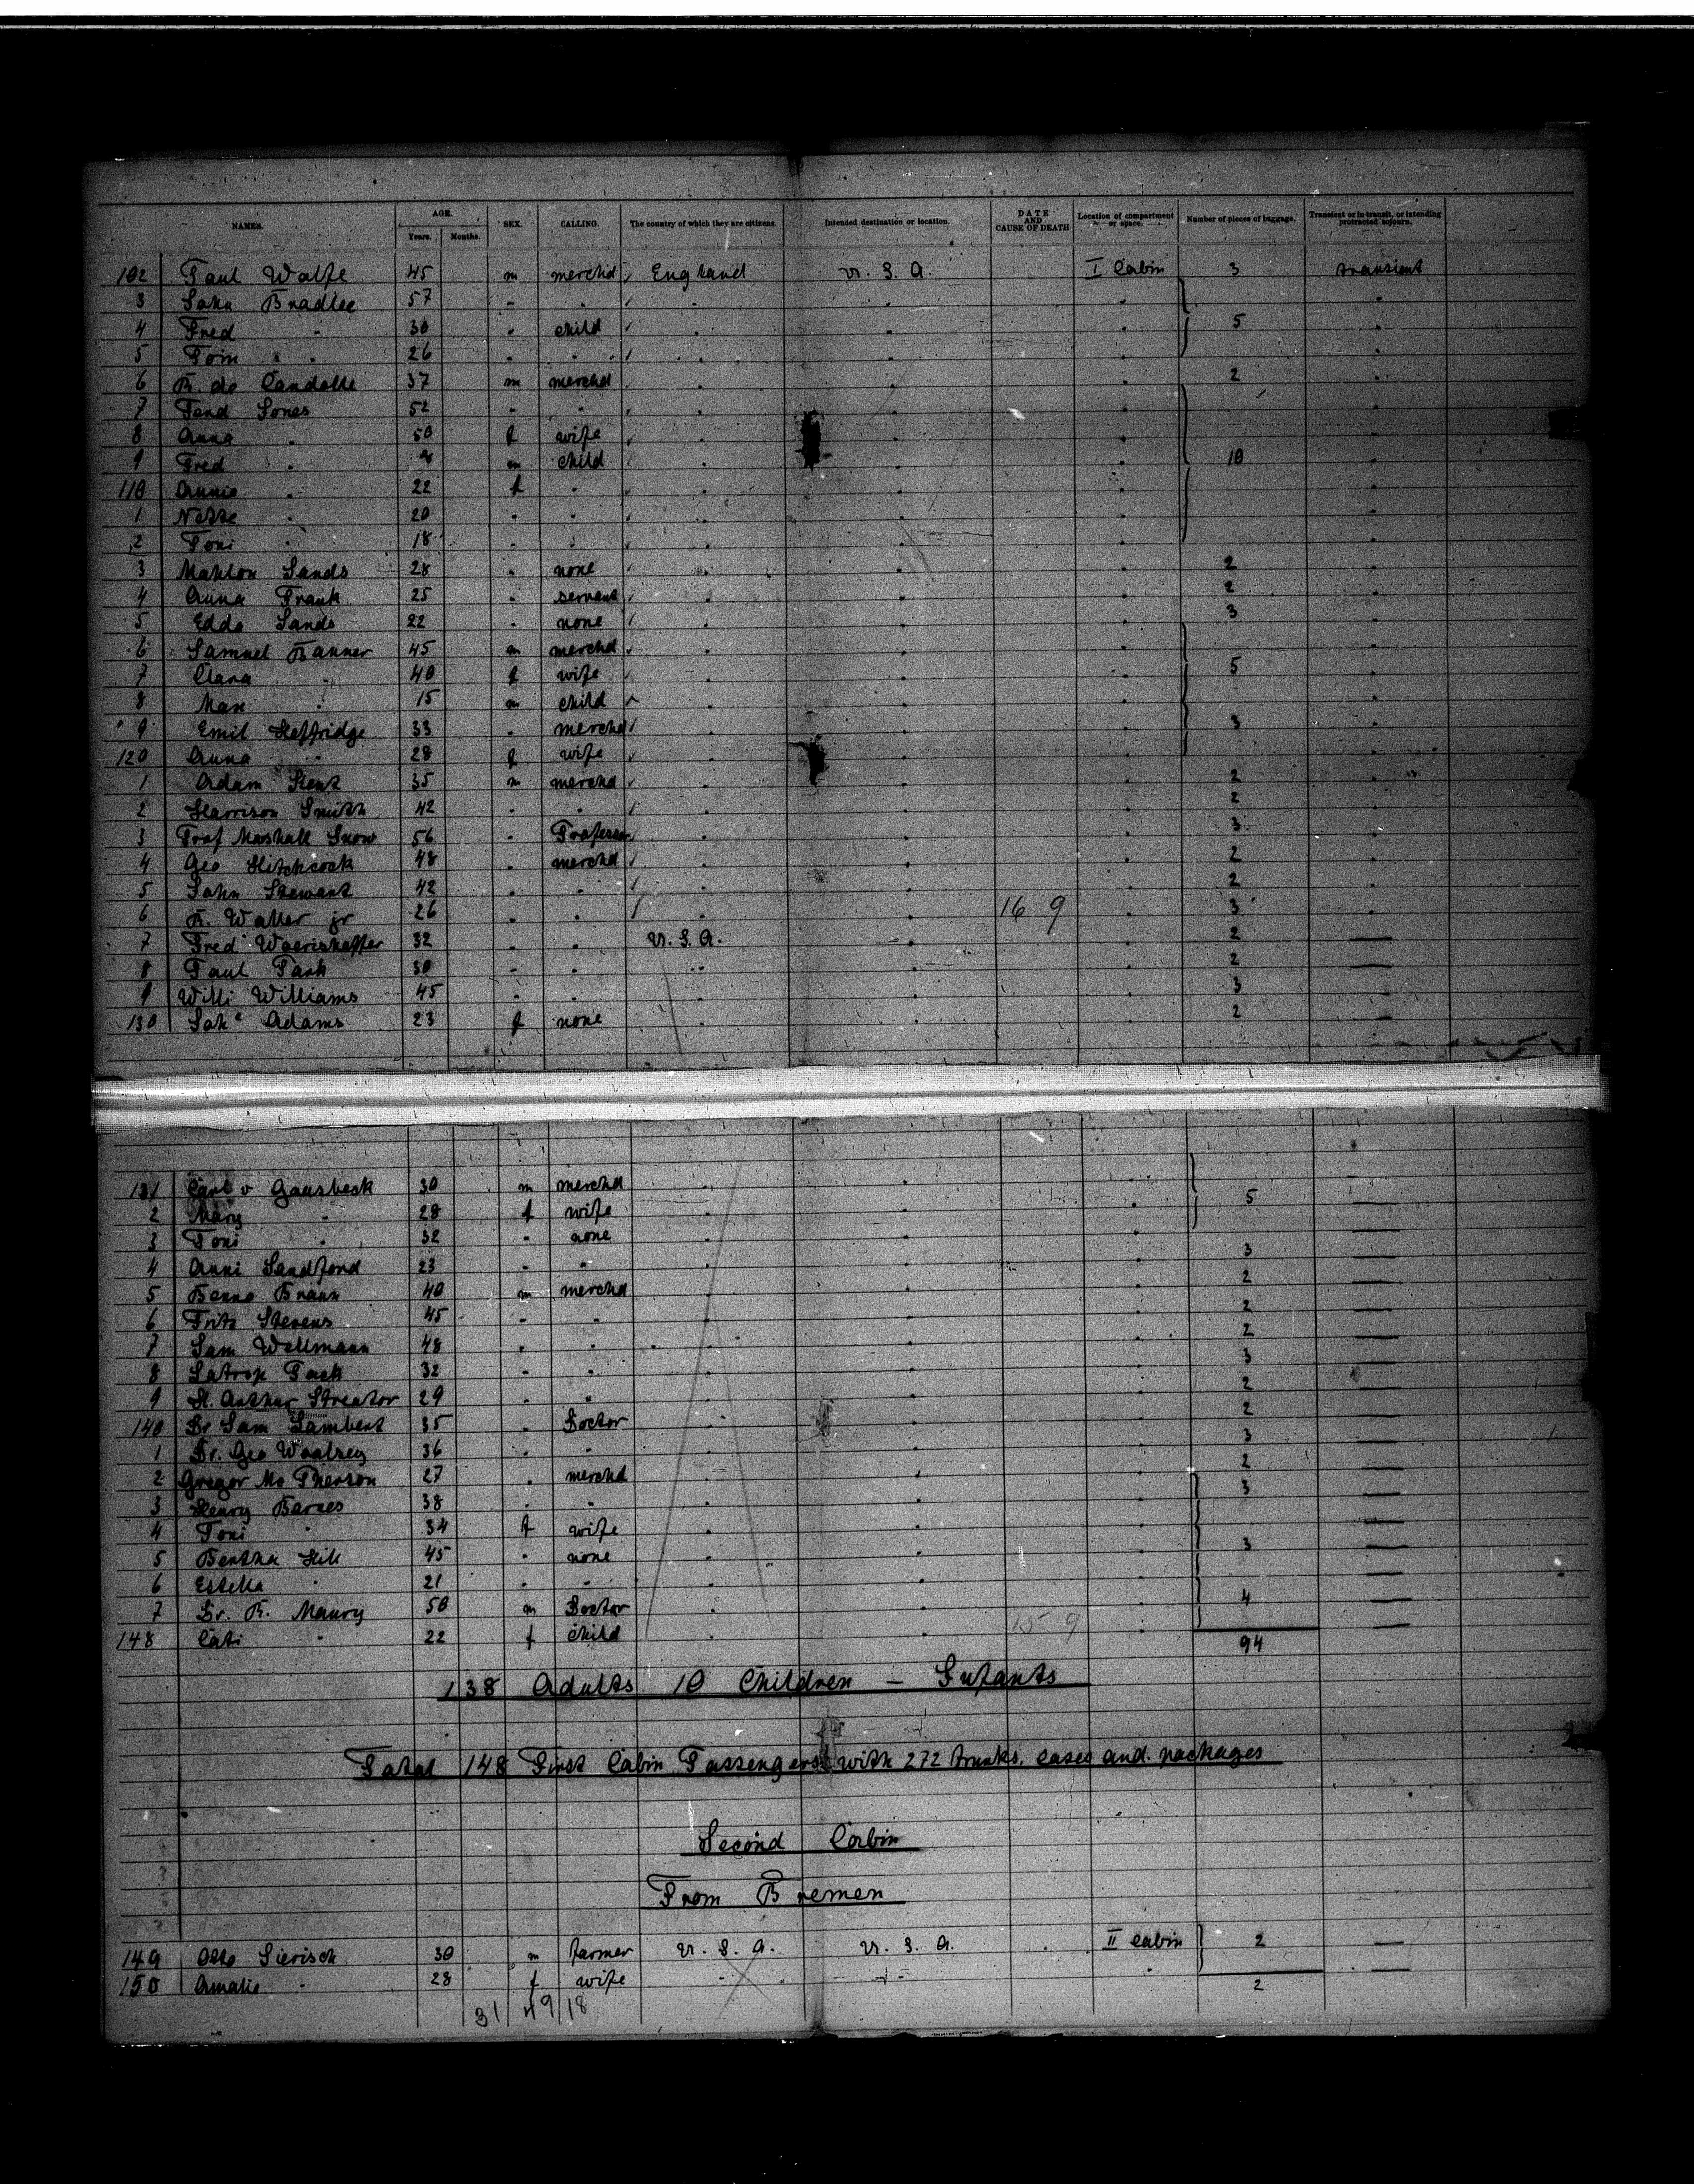 NAMES. AGE. Years. Months. SEX. CALLING. The country of which they are citizens. Intended destination or location. DATE AND CAUSE OF DEATH Location of compartment or space. Number of pieces of baggage. Transient or in transit, or intending protracted sojourn.
102 Paul Wolfe 45 m merchd England U. S. A. I Cabin 3 transient
3 John Bradlee 57 " "
4 Fred " 30 " child 5
5 Tom " 26 " "
6 R. de Candolle 37 m merchd 2
7 Ferd Jones 52 " "
8 Anna " 50 f wife
9 Fred " m child 10
110 Annie " 22 f "
1 " 20 " "
2 Toni " 18 " "
3 Mahlon Sands 28 " none 2
4 Anna Frank 25 " servant 2
5 Edda Sands 22 " none 3
6 Samuel Banner 45 m merchd
7 Clara " 40 f wife 5
8 Max " 15 m child
9 Emil Heffridge 33 " merchd 3
120 Anna " 28 f wife
1 Adam Kent 35 m merchd 2
2 Harrison Smith 42 " " 2
3 Prof Marshall Snow 56 " Professor 3
4 Geo Hitchcock 48 " merchd 2
5 John Stewart 42 " " 2
6 R. Waller jr 26 " " 16 9 3
7 Fred Woerishoffer 32 " " U. S. A. 2 —
8 Paul Park 30 " " 2 —
9 Willi Williams 45 " " 3 —
130 Joha Adams 23 f none 2 —
131 Carl v Gaasbeck 30 m merchd —
2 Mary " 28 f wife 5 —
3 Toni " 32 " none —
4 Anni Sandford 23 " " 3 —
5 Benno Braun 40 m merchd 2 —
6 Fritz Stevens 45 " " 2 —
7 Sam Wellmann 48 " " 2 —
8 Latrop Pack 32 " " 3 —
9 H. Arthur Streator 29 " " 2 —
140 Dr Sam Lambert 35 " Doctor 2 —
1 Dr. Geo Woolsey 36 " " 3 —
2 Gregor Mc Pherson 27 " merchd 2 —
3 Henry Barnes 38 " " 3 —
4 Toni " 34 f wife —
5 Bertha Hill 45 " none 3 —
6 Estella " 21 " " —
7 Dr. R. Maury 50 m Doctor 4 —
148 Cati " 22 f child 15 9 —
94
138 Adults 10 Children — Infants
Total 148 First Cabin Passengers with 272 trunks, cases and packages
Second Cabin
From Bremen
149 Otto Sierisch 30 m farmer U. S. A. U. S. A. II cabin 2 —
150 Amalie " 28 f wife " " —
2
31 49 18